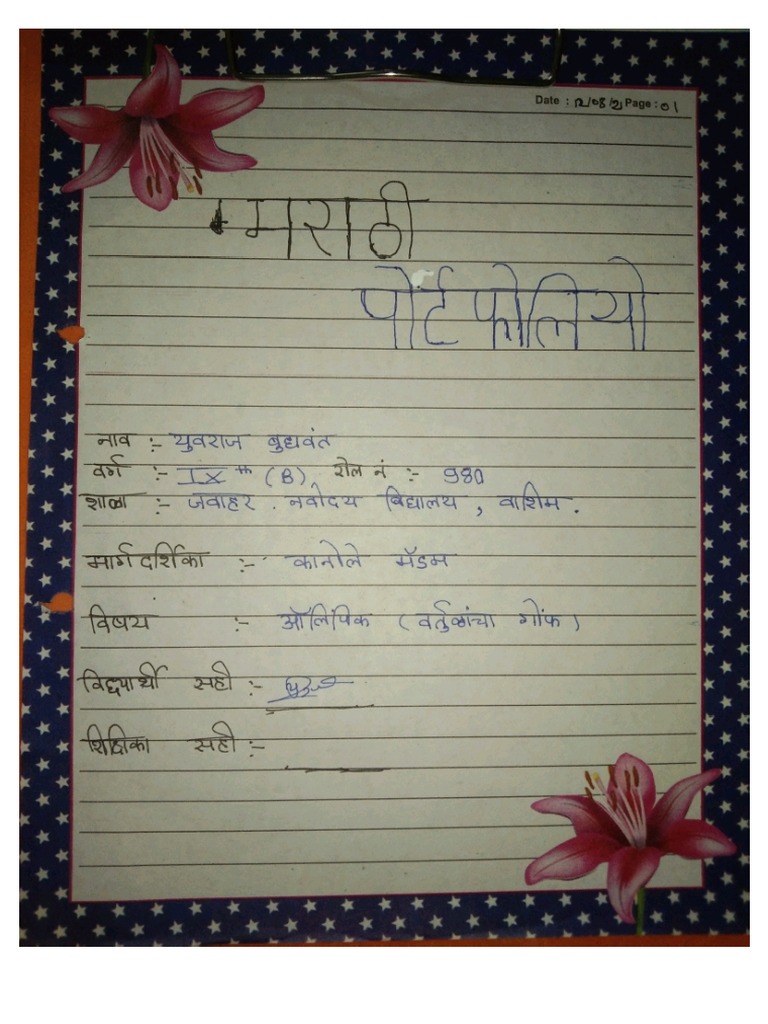 Date : 12/08/21 Page : 01
मराठी
पोर्टफोलियो
नाव :- युवराज बुधवंत
वर्ग :- IX th (B) रोल नं :- 980
शाळा :- जवाहर . नवोदय विद्यालय , वाशिम .
मार्गदर्शिका :- कानोले मॅडम
विषय :- ऑलिंपिक (वर्तुळांचा गोंफ)
विद्यार्थी सही :-
शिक्षिका सही :-